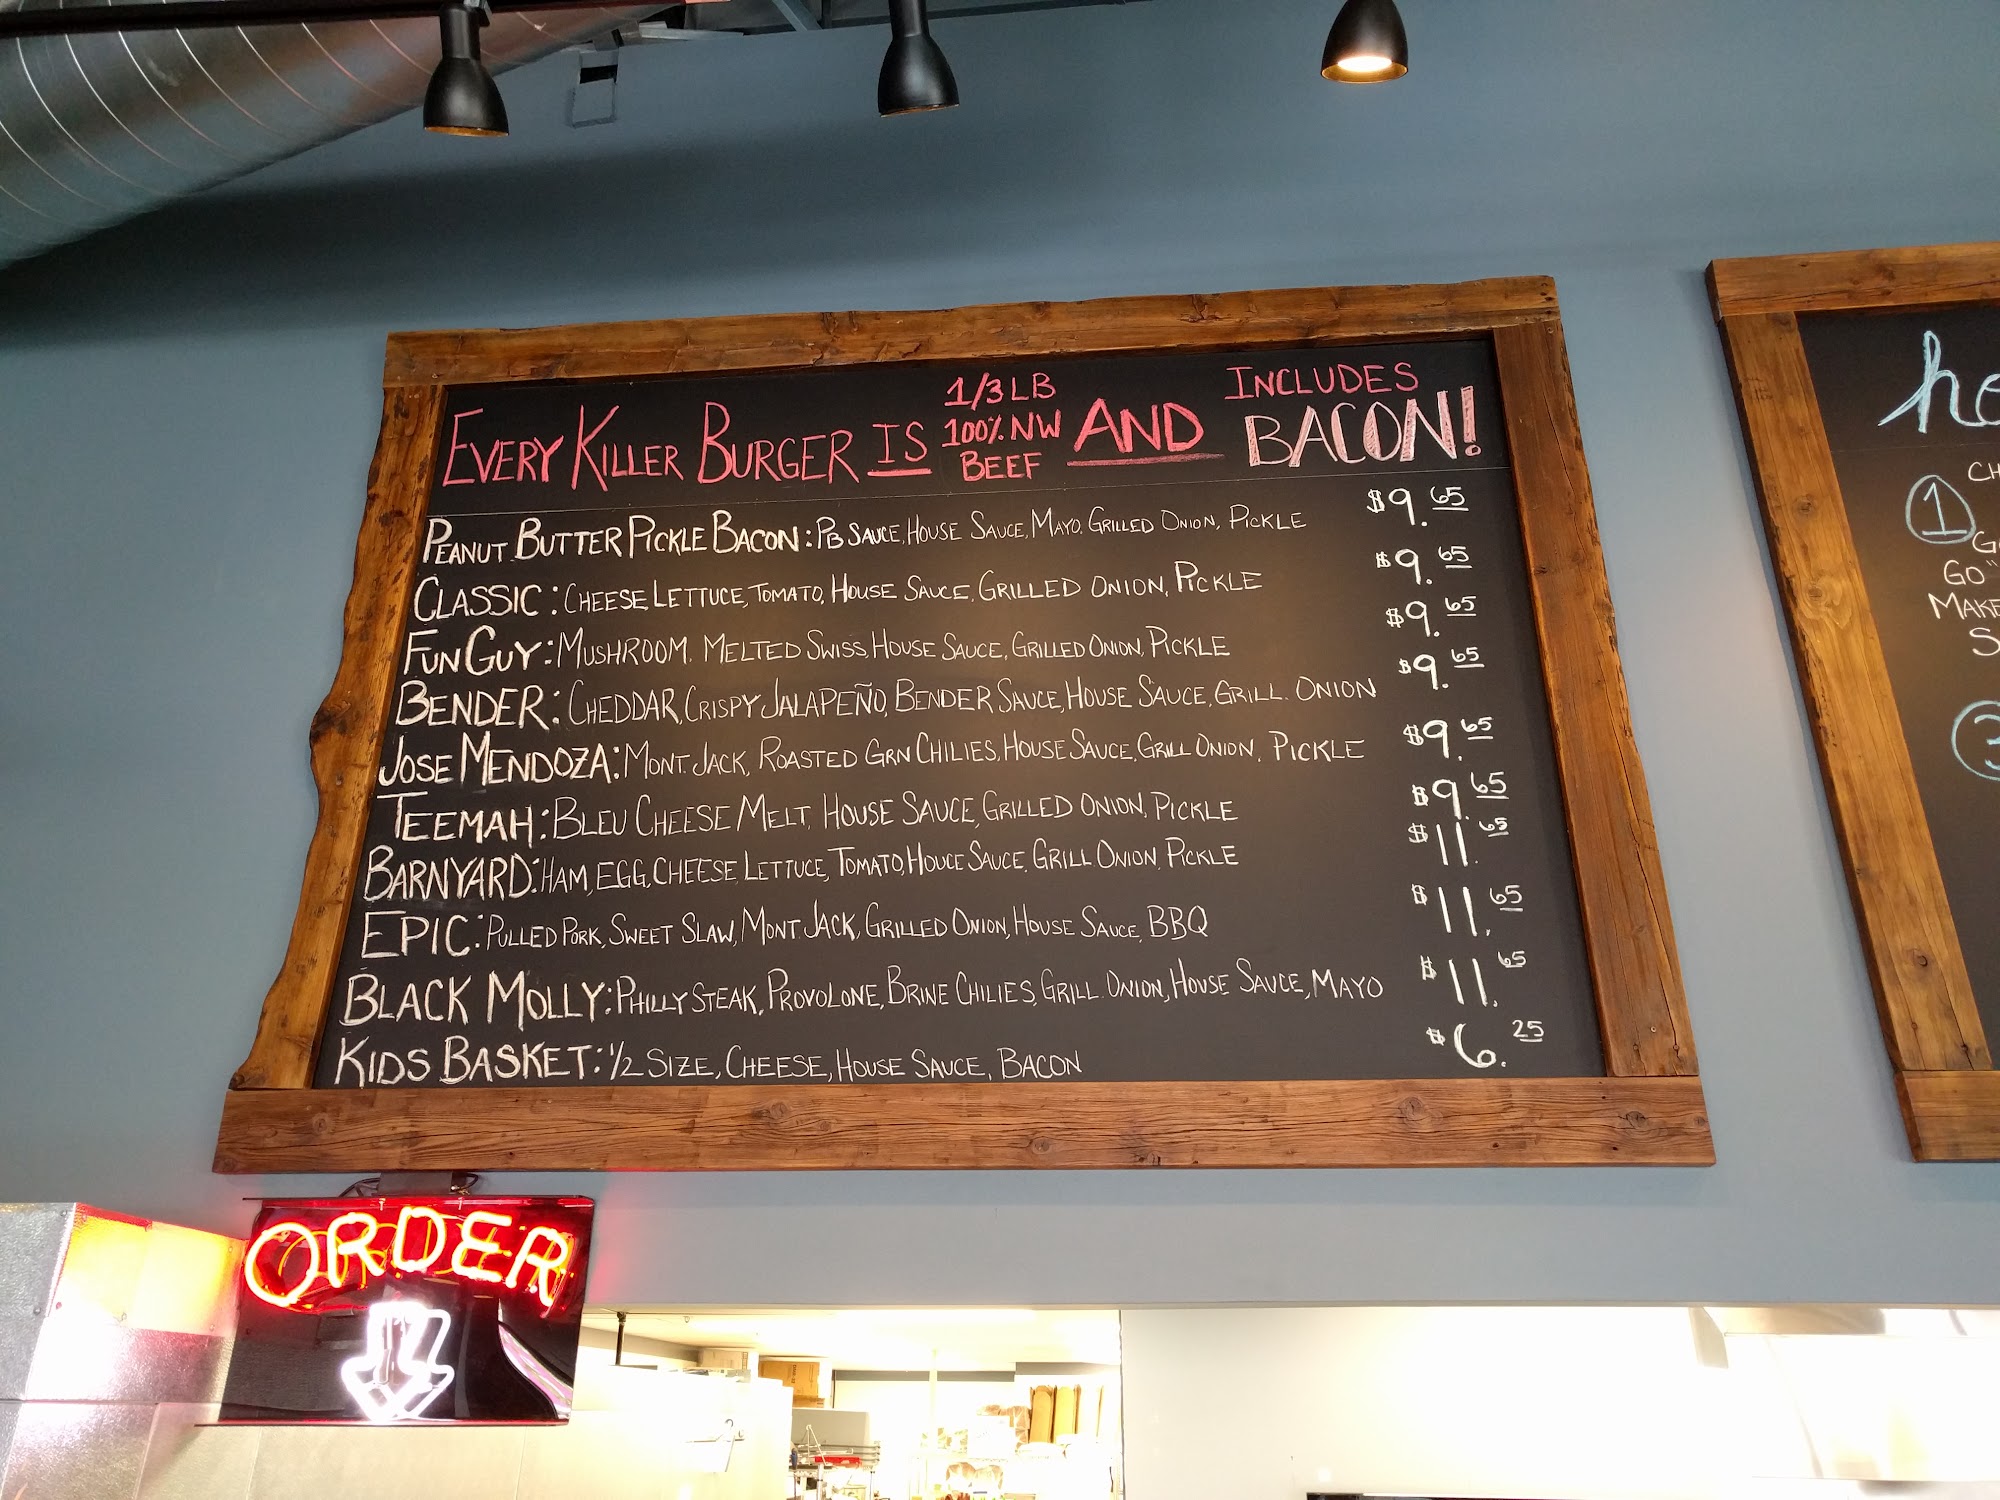 EVERY KILLER BURGER IS 1/3 LB 100% NW BEEF AND INCLUDES BACON!
PEANUT BUTTER PICKLE BACON: PB SAUCE, HOUSE SAUCE, MAYO. GRILLED ONION, PICKLE $9.65
CLASSIC: CHEESE LETTUCE, TOMATO, HOUSE SAUCE, GRILLED ONION, PICKLE $9.65
FUN GUY: MUSHROOM. MELTED SWISS, HOUSE SAUCE, GRILLED ONION, PICKLE $9.65
BENDER: CHEDDAR, CRISPY JALAPEÑO, BENDER SAUCE, HOUSE SAUCE, GRILL. ONION $9.65
JOSE MENDOZA: MONT. JACK, ROASTED GRN CHILIES, HOUSE SAUCE, GRILL ONION, PICKLE $9.65
TEEMAH: BLEU CHEESE MELT, HOUSE SAUCE, GRILLED ONION, PICKLE $9.65
BARNYARD: HAM, EGG, CHEESE, LETTUCE, TOMATO, HOUCE SAUCE, GRILL ONION, PICKLE $11.65
EPIC: PULLED PORK, SWEET SLAW, MONT. JACK, GRILLED ONION, HOUSE SAUCE, BBQ $11.65
BLACK MOLLY: PHILLY STEAK, PROVOLONE, BRINE CHILIES, GRILL. ONION, HOUSE SAUCE, MAYO $11.65
KIDS BASKET: 1/2 SIZE, CHEESE, HOUSE SAUCE, BACON $6.25
ORDER
1
GO"
MAKE
3